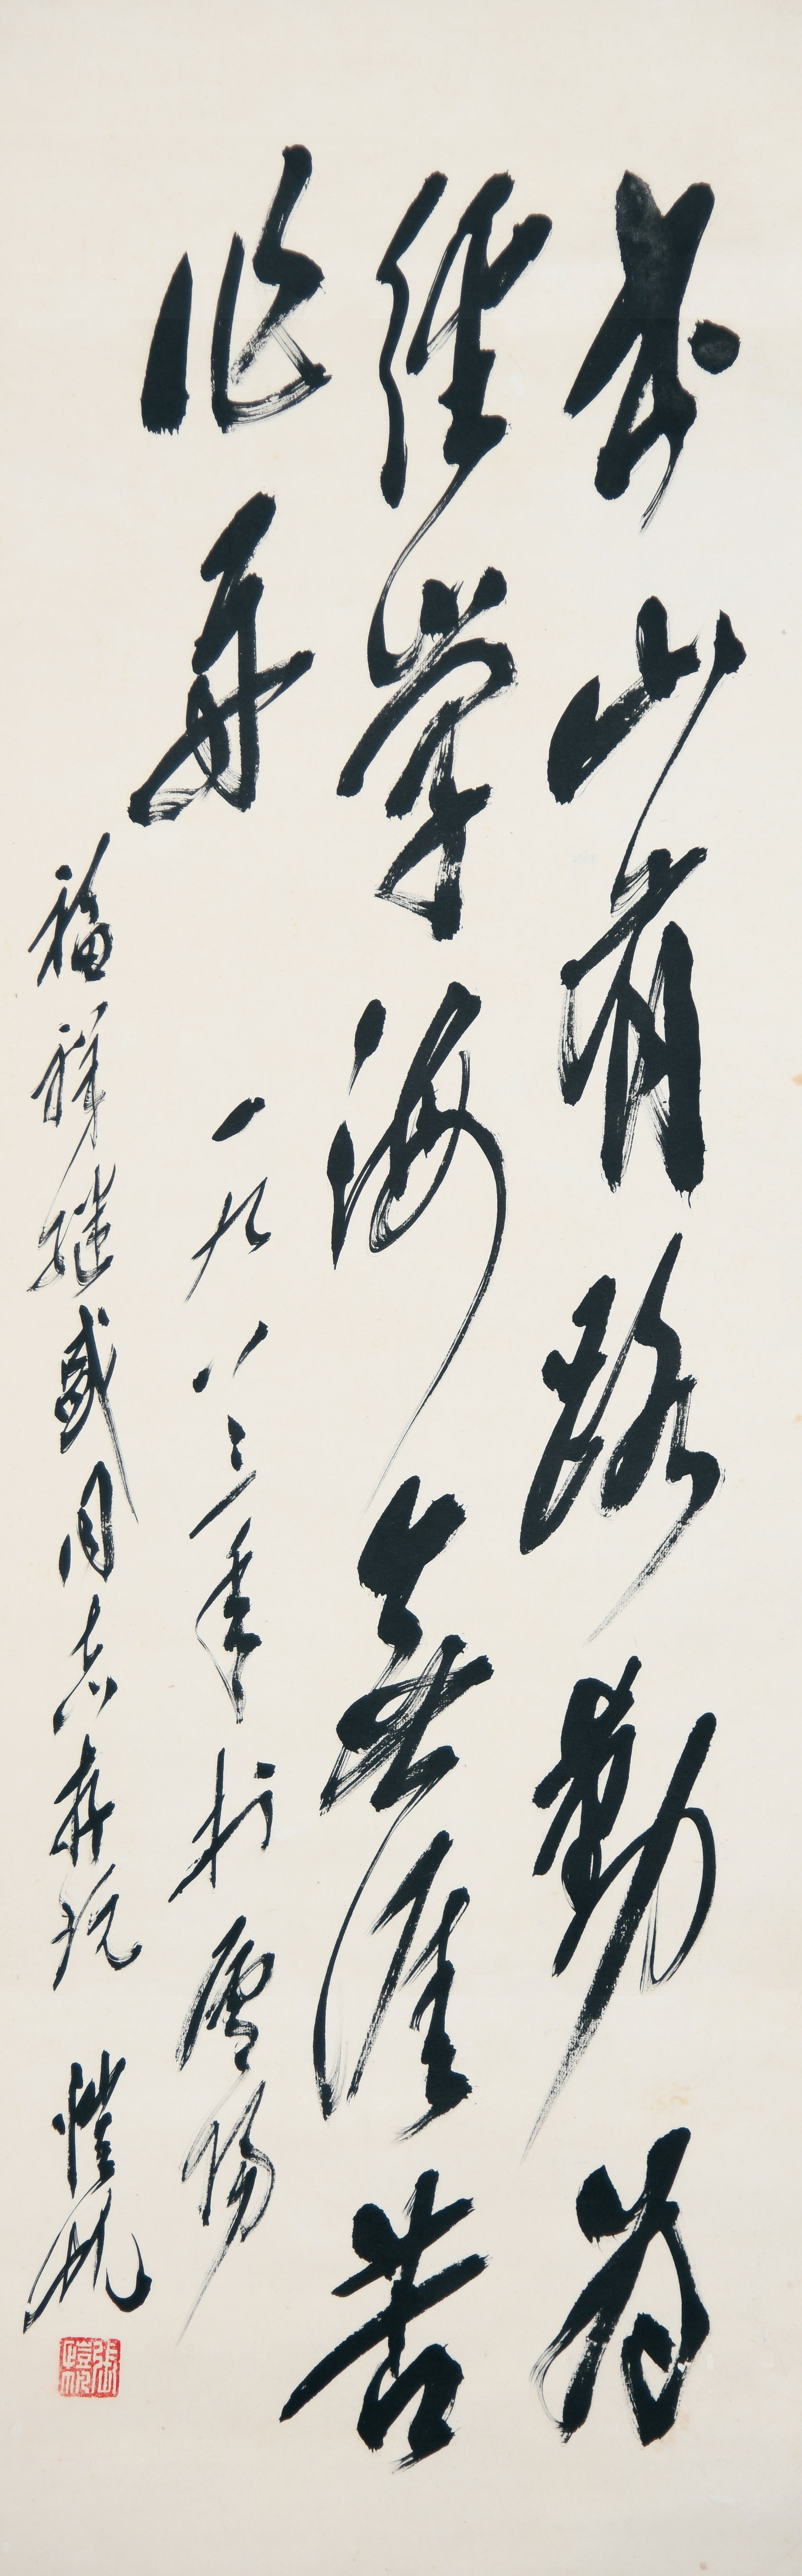 书山有路勤为
径学海无涯苦
作舟
一九八三年于唐阳
福祥继盛同志存玩 恺帆
张恺帆